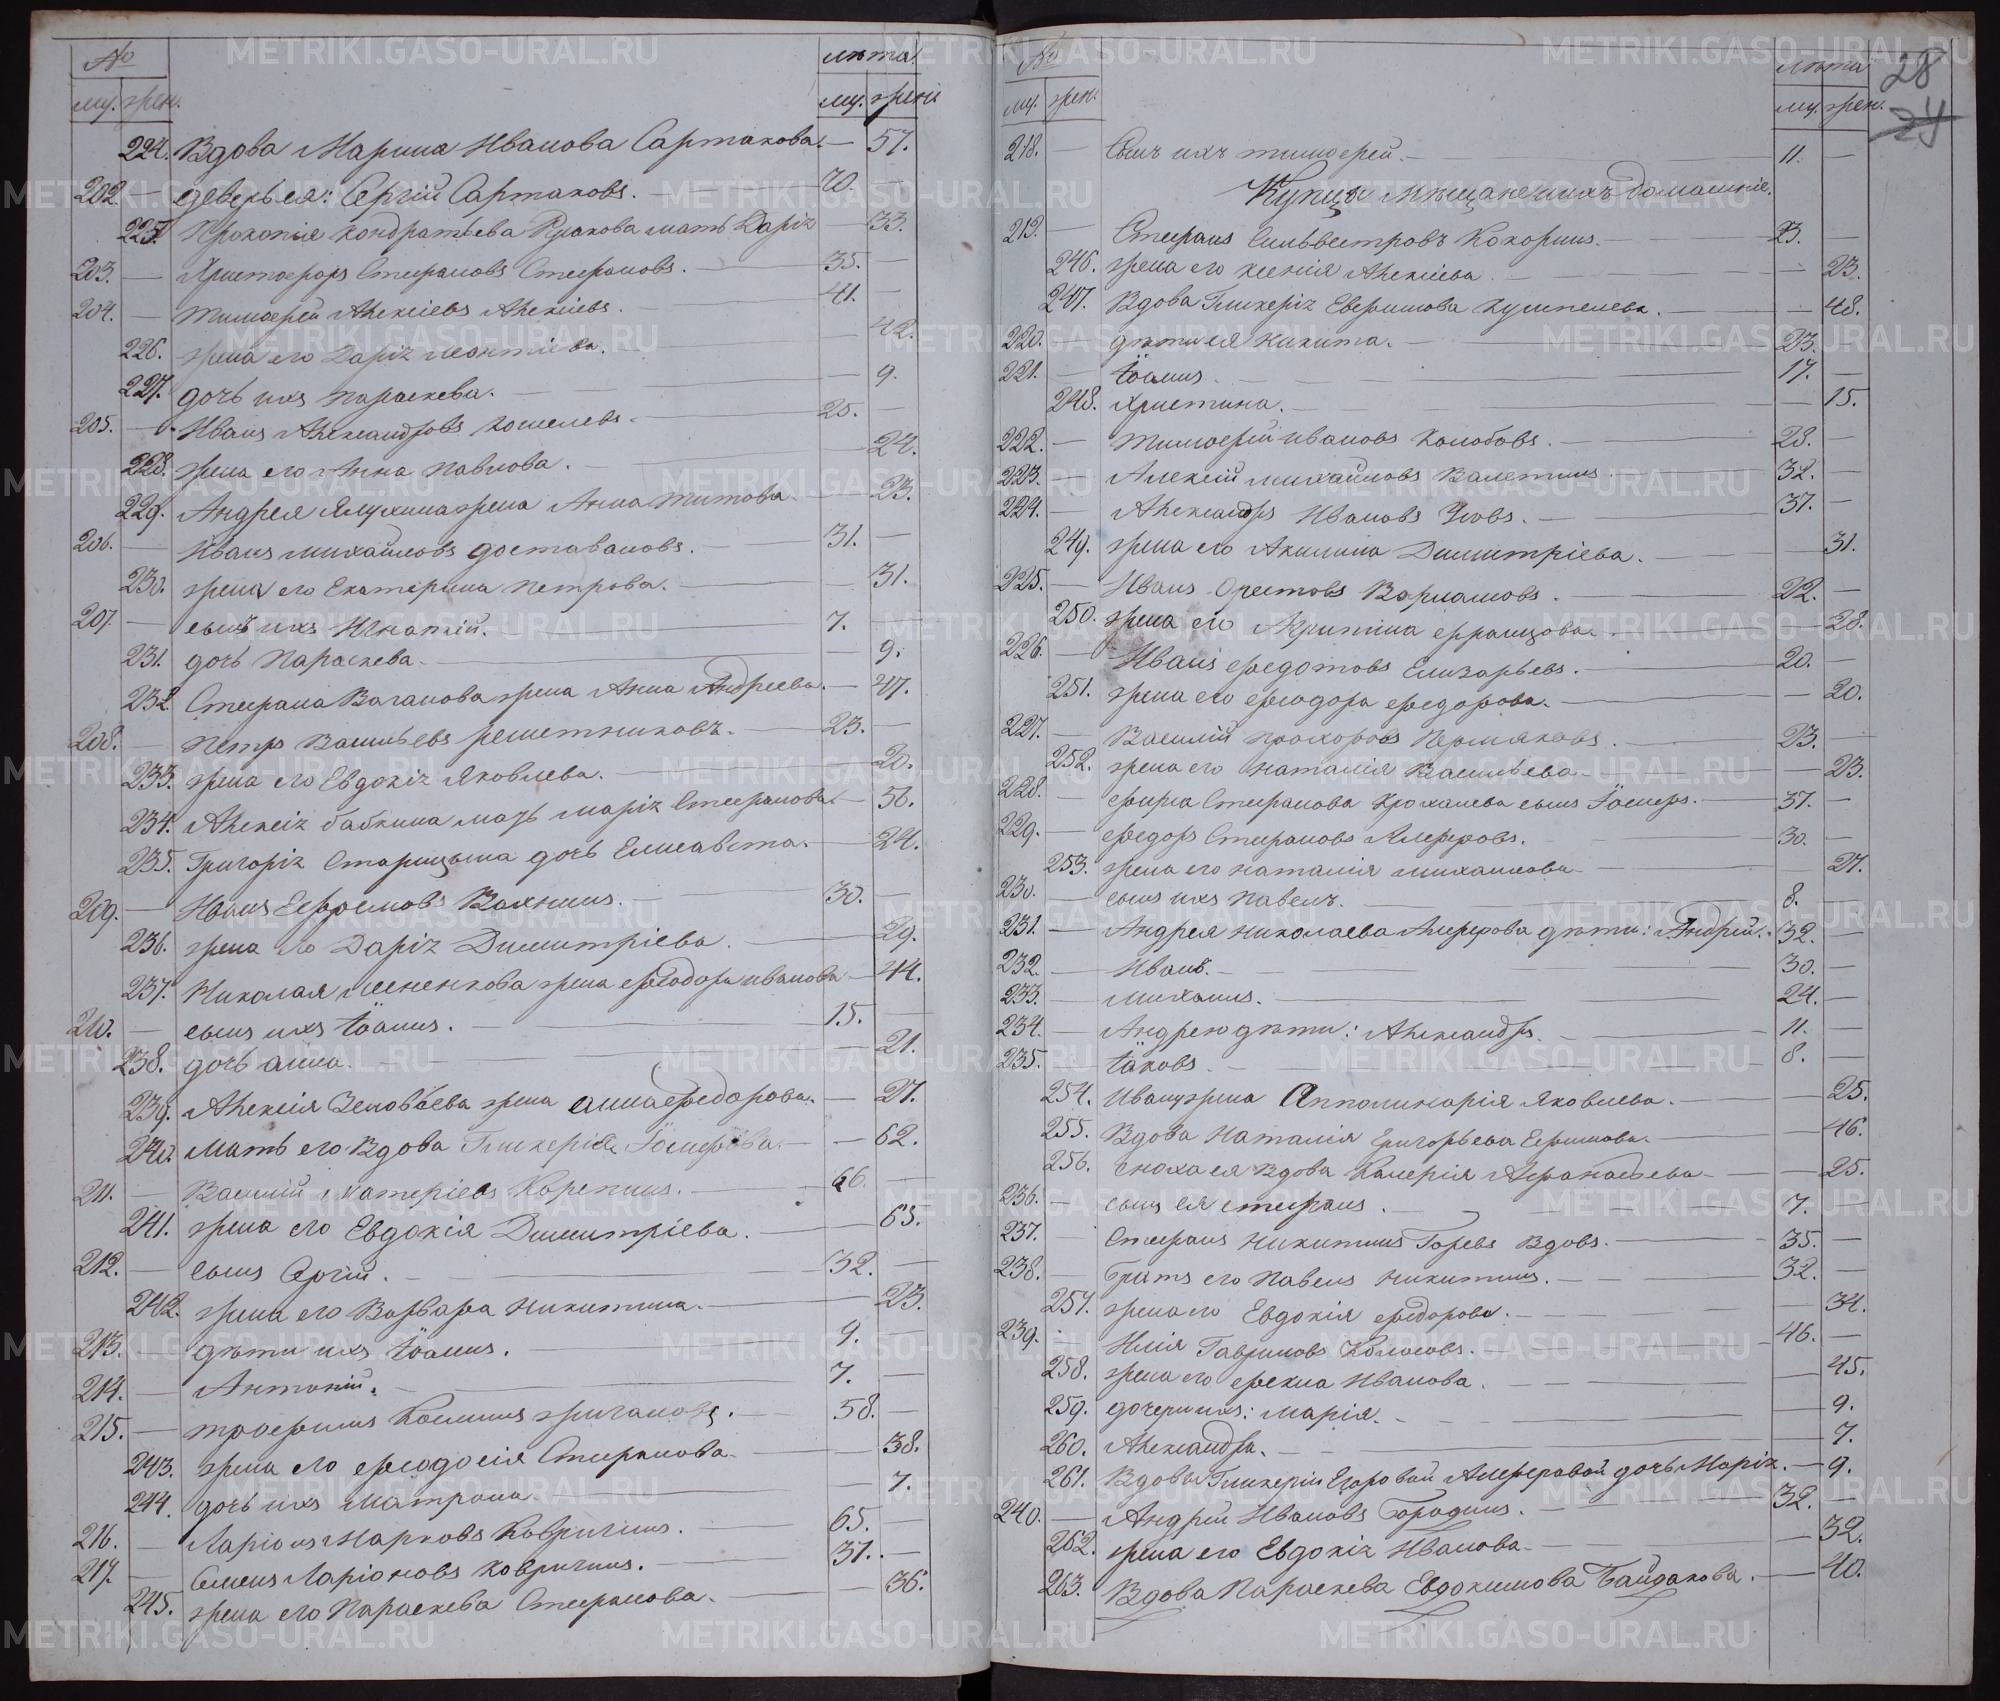 № лѣта.
му. жен. му. жен.
224. Вдова Марина Иванова Сартакова. — 57.
202. — деверь ея: Сергій Сартаковъ. — 70. —
225. Прокопія Кондратьева мать Дарія — 33.
203. — Христофоръ Стефановъ Стефановъ. — 35. —
204. — Тимоѳей Алексіевъ Алексіевъ. — 41. —
226. жена его Дарія Леонтіева. — 42.
227. дочь ихъ Параскева. — 9.
205. — Иванъ Александровъ Кошелевъ. 25. —
228. жена его Анна Павлова. — 24.
229. Андрея Ялухина жена Анна Титова. — 23.
206. — Иванъ Михайловъ Доставаловъ. — 31. —
230. жена его Екатерина Петрова. — 31.
207. — сынъ ихъ Игнатій. — 7. —
231. дочь Параскева. — 9.
232. Стефана Ваганова жена Анна Андреева. — 47.
208. — Петръ Васильевъ Решетниковъ. — 23. —
233. жена его Евдокія Яковлева. — 20.
234. Алексія Бабкина мать Марія Стефанова. — 56.
235. Григорія Старицына дочь Елисавета. — 24.
209. — Иванъ Ефремовъ Вахнинъ. — 30. —
236. жена его Дарія Димитріева. — 29.
237. Николая Мененкова жена Ѳеодора Иванова — 44.
210. — сынъ ихъ Іоаннъ. — 15. —
238. дочь Анна. — 21.
239. Алексія Зеновьева жена Анна Ѳедорова. — 27.
240. Мать его Вдова Гликерія Іосифова. — 62.
211. — Василій Корепинъ. — 66. —
241. жена его Евдокія Димитріева. — 65.
212. — сынъ Сергій. — 32. —
242. жена его Варвара Никитина. — 23.
213. — дѣти ихъ Іоаннъ. 9. —
214. — Антоній. — 7. —
215. — Трофимъ Косминъ Жигаловъ. — 58. —
243. жена его Ѳеодосія Стефанова. — 38.
244. дочь ихъ Матрона. — 7.
216. — Ларіонъ Марковъ Ковригинъ. — 65. —
217. — Семенъ Ларіоновъ Ковригинъ. — 37. —
245. жена его Параскева Стефанова. — 36.
28
24
№ лѣта
му. жен. му. жен.
218. — Сынъ ихъ Тимоѳей. — 11. —
Купцы мѣщане и ихъ домашніе.
219. — Стефанъ Сильвестровъ Кокоринъ. — 23. —
246. жена его Ксенія Алексіева. — 23.
247. Вдова Гликерія Евфимова Кунгелева. — 48.
220. — дѣти ея Никита. — 23. —
221. — Іоаннъ. — 17. —
248. Христина. — 15.
222. — Тимоѳей Ивановъ Колобовъ. — 28. —
223. — Алексій Михайловъ Валетинъ. 32. —
224. — Александръ Ивановъ Усовъ. — 37. —
249. жена его Акилина Димитріева. — 31.
225. — Иванъ Орестовъ Варламовъ. — 22. —
250. жена его Агрипина. — 28.
226. — Иванъ Ѳедотовъ Елизарьевъ. — 20. —
251. жена его Ѳеодора Ѳедорова. — 20.
227. — Василій Прохоровъ Пермяковъ. — 23. —
252. жена его Наталія Васильева — 23.
228. — Фирса Стефанова Крохалева сынъ Іосифъ. — 37. —
229. — Ѳедоръ Стефановъ Алферовъ. 30. —
253. жена его Наталія Михаилова — 27.
230. — сынъ ихъ Павелъ. — 8. —
231. — Андрея Николаева Алферова дѣти: Андрей. — 32. —
232. — Иванъ. — 30. —
233. — Михаилъ. — 24. —
234. — Андрею дѣти: Александръ. — 11. —
235. — Іаковъ. — 8. —
254. Ивану жена Апполинарія Яковлева. — 25.
255. Вдова Наталія Григорьева Ефимова. — 46.
256. сноха ея Вдова Калерія Афанасьева — 25.
236. — сынъ ея Стефанъ. — 7. —
237. — Стефанъ Никитинъ Горевъ Вдовъ. — 35. —
238. — Братъ его Павелъ Никитинъ. — 32. —
257. жена его Евдокія Ѳедорова. — 34.
239. — Илія Гавриловъ Колосовъ. — 46. —
258. жена его Ѳекла Иванова. — 45.
259. дочери ихъ: Марія. — 9.
260. Александра. — 7.
261. Вдовы Гликеріи Егоровой Алферовой дочь Марія. — 9.
240. — Андрей Ивановъ Бородинъ. — 32. —
262. жена его Евдокія Иванова — 32.
263. Вдова Параскева Евдокимова Байдакова. — 40.